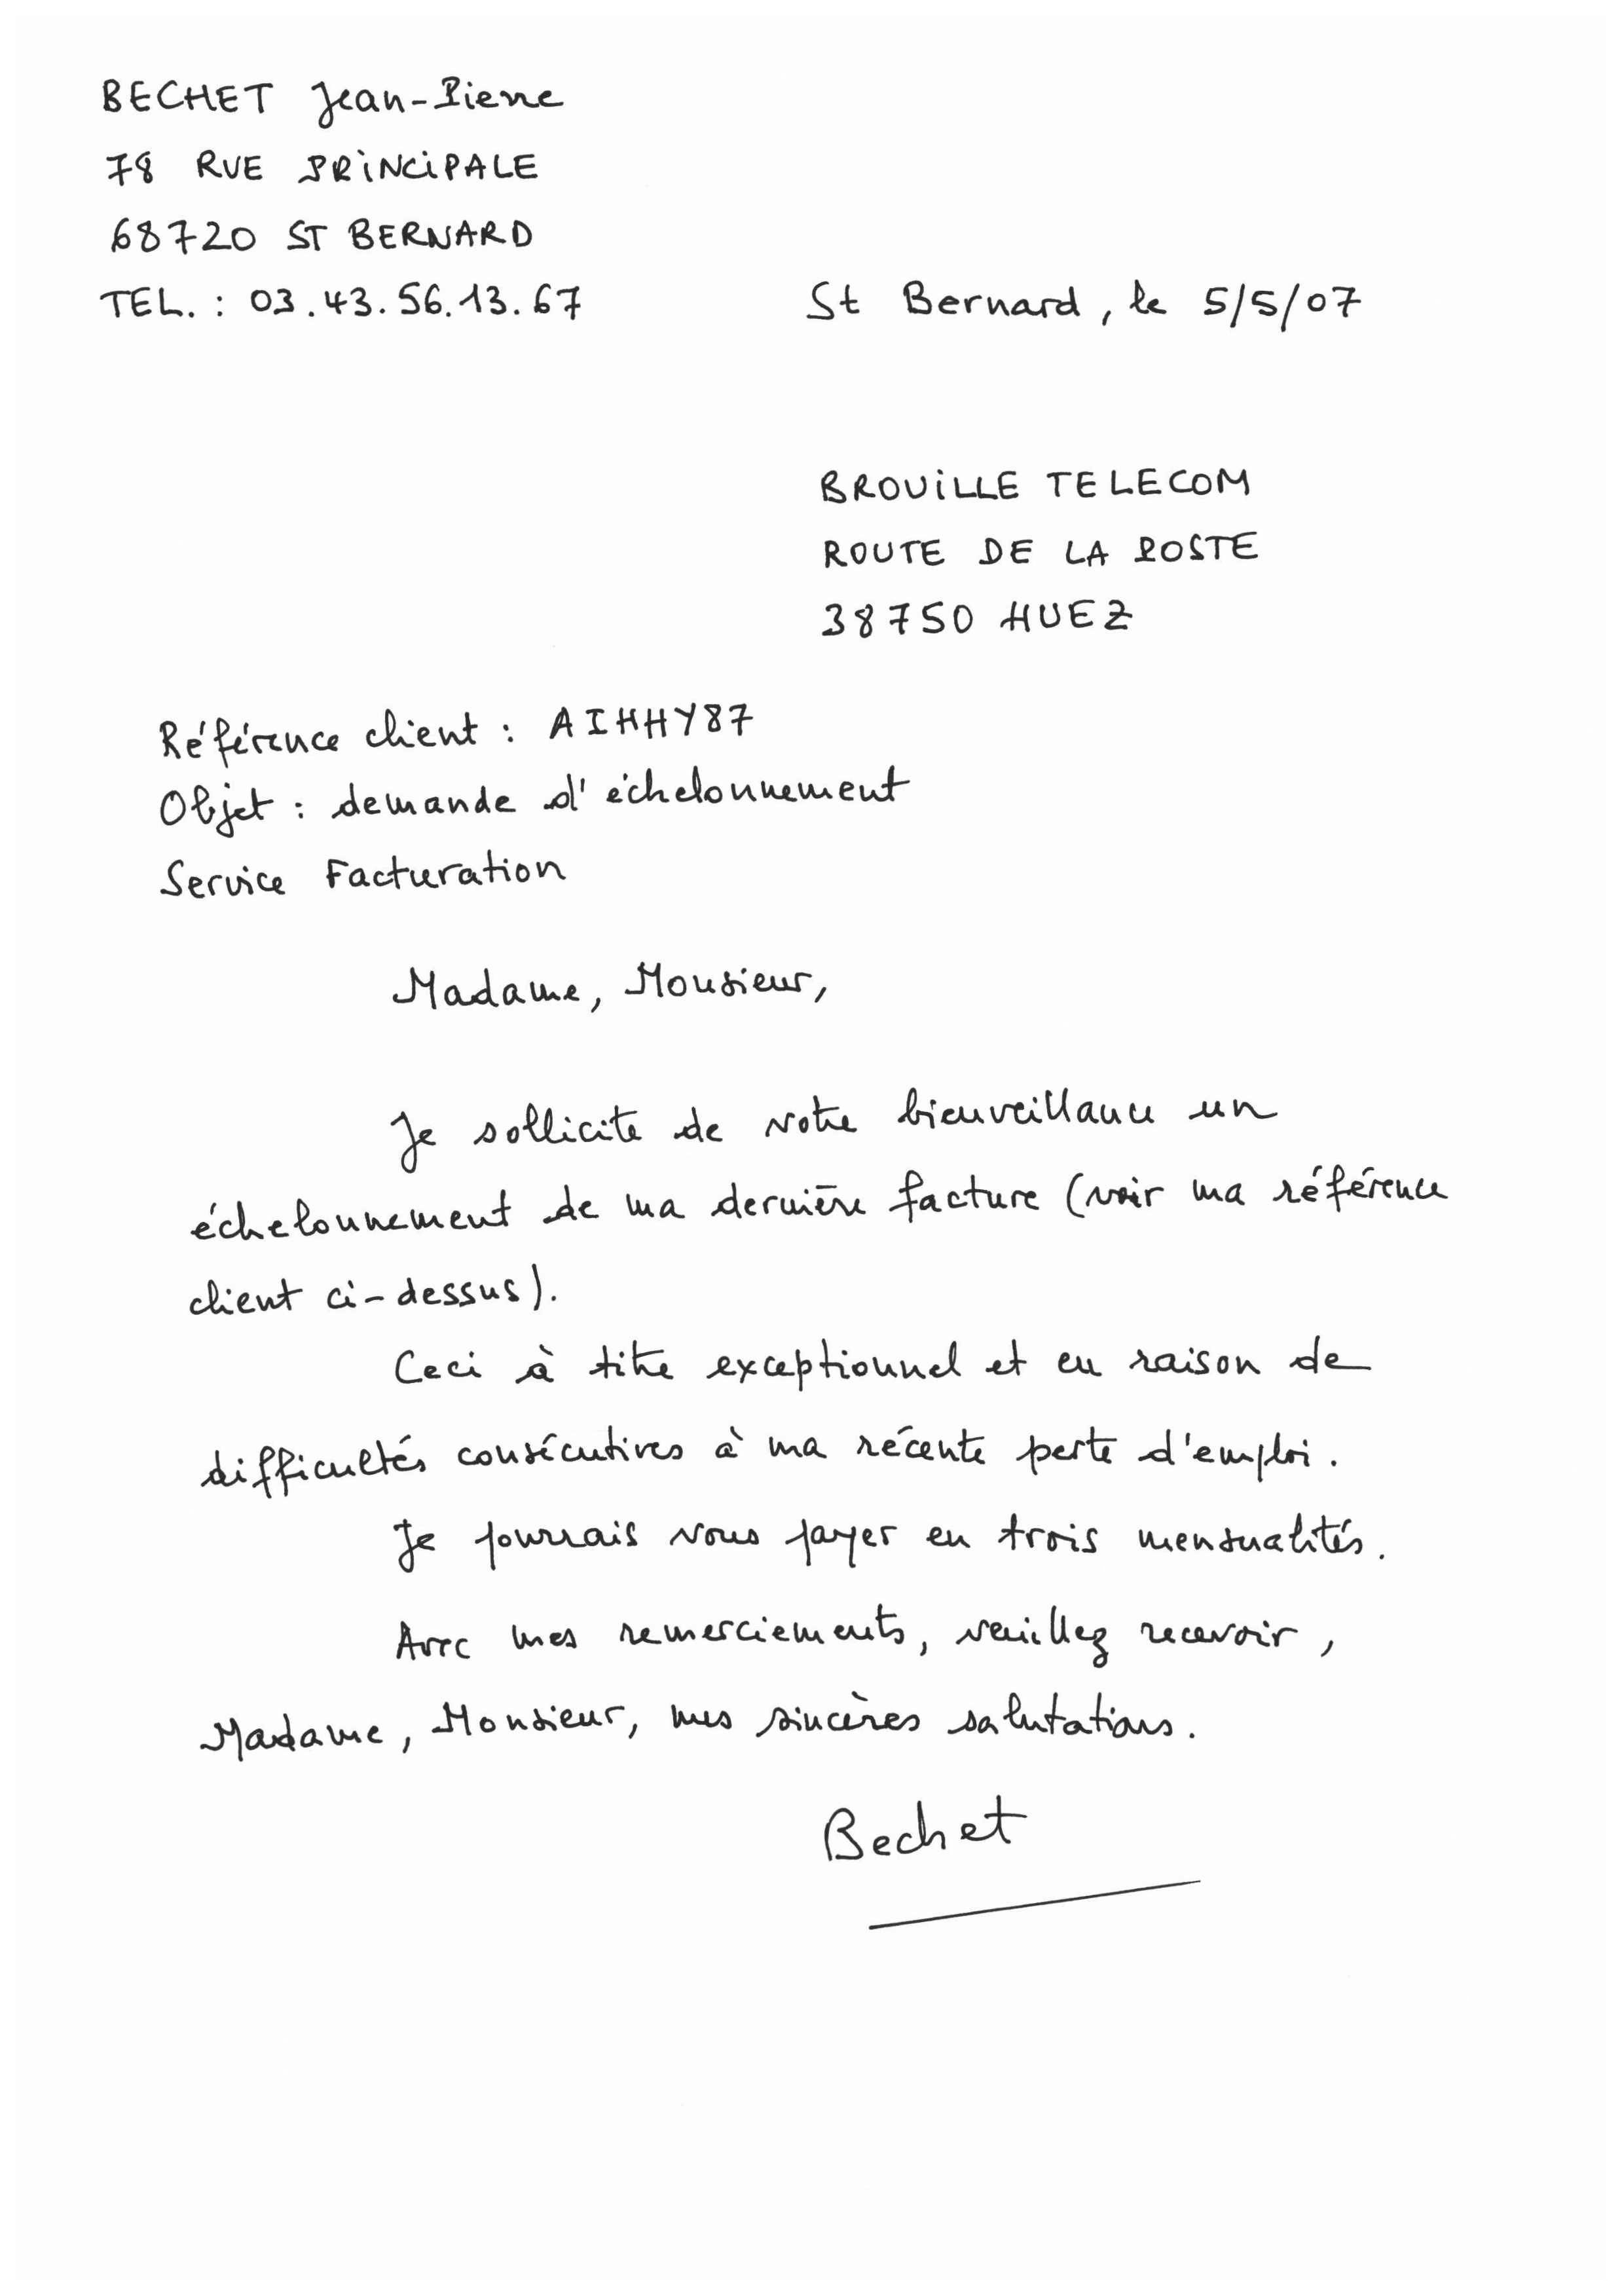 BECHET Jean-Pierre
78 RUE PRINCIPALE
68720 ST BERNARD
TEL. : 03.43.56.13.67
St Bernard, le 5/5/07
BROUILLE TELECOM
ROUTE DE LA POSTE
38750 HUEZ
Référence client : AIHHY87
Objet : demande d'échelonnement
Service Facturation
Madame, Monsieur,
Je sollicite de votre bienveillance un
échelonnement de ma dernière facture (voir ma référence
client ci-dessus).
Ceci à titre exceptionnel et en raison de
difficultés consécutives à ma récente perte d'emploi.
Je pourrais vous payer en trois mensualités.
Avec mes remerciements, veuillez recevoir,
Madame, Monsieur, mes sincères salutations.
Bechet